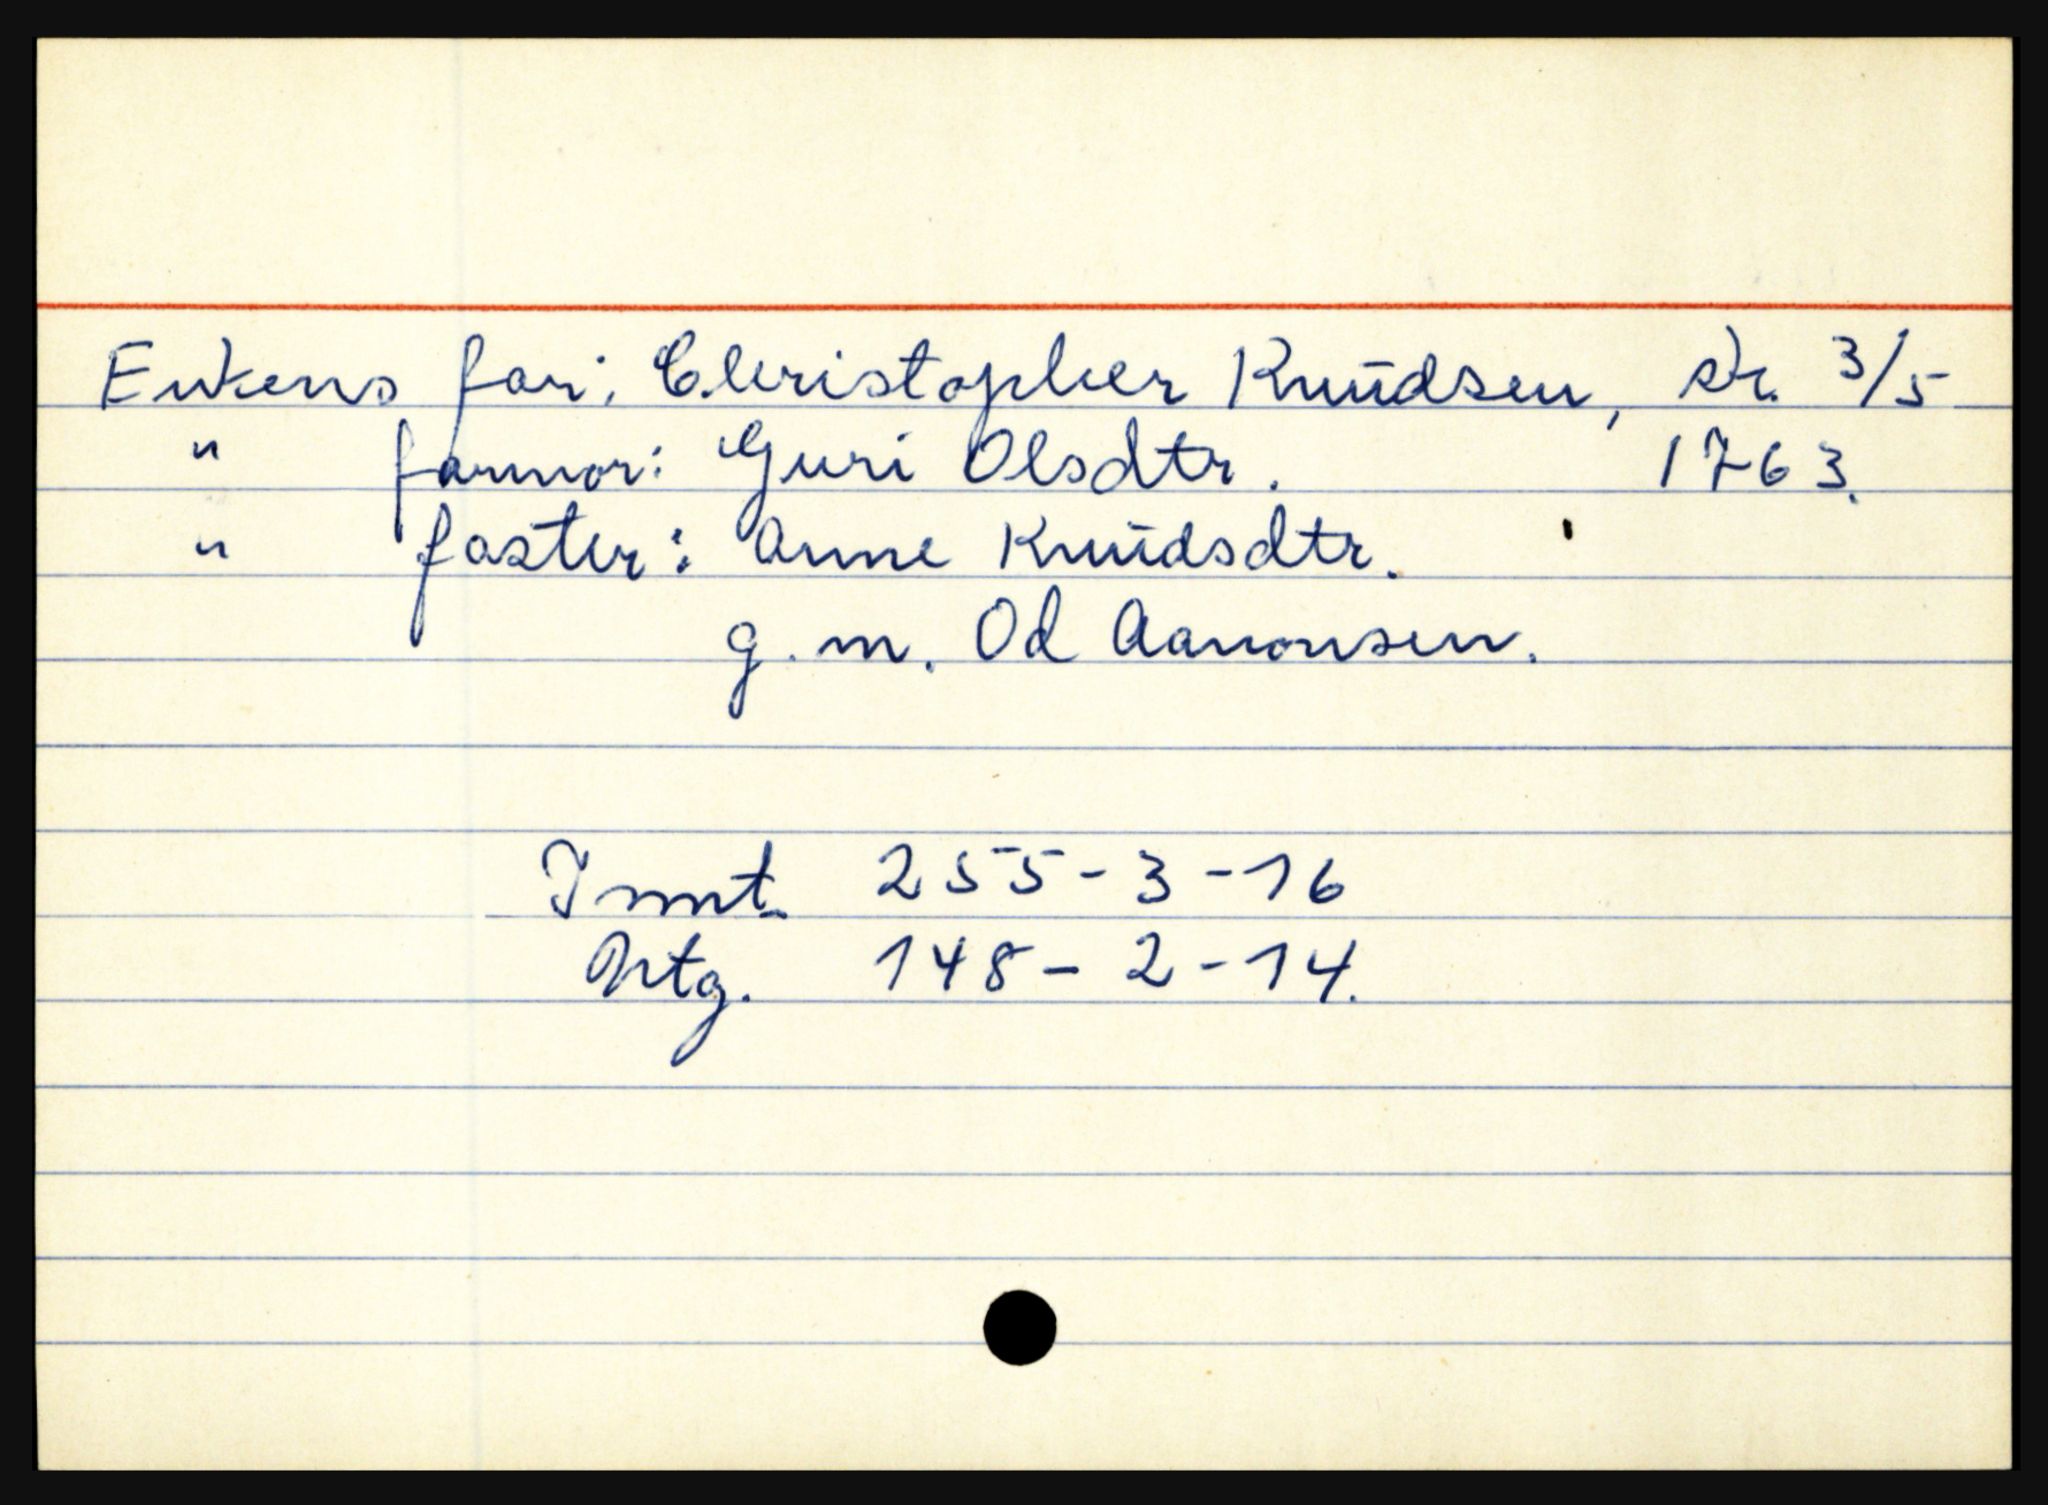 Enkens far: Christopher Knudsen, sk. 3/5
" farmor: Guri Olsdtr. 1763.
" faster: Anne Knudsdtr.
g.m. Od Aanonsen.
Innt. 255-3-16
Ntg. 148-2-14.